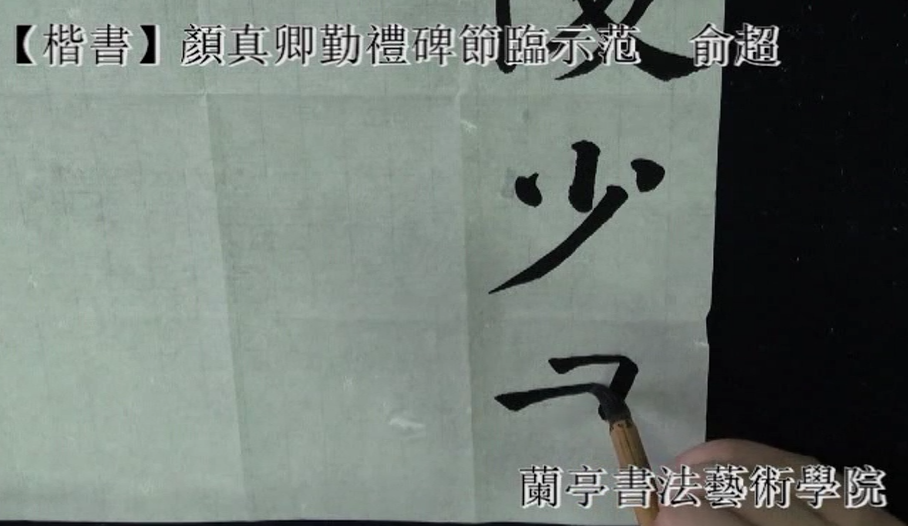 【楷書】顏真卿勤禮碑節臨示范　俞超
少
蘭亭書法藝術學院